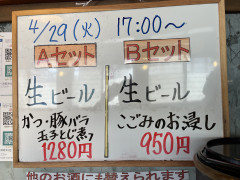 4/29(火) 17:00〜
Aセット
Bセット
生ビール
かつ・豚バラ
玉子とじ煮
1280円
生ビール
こごみのお浸し
950円
他のお酒にも替えられます